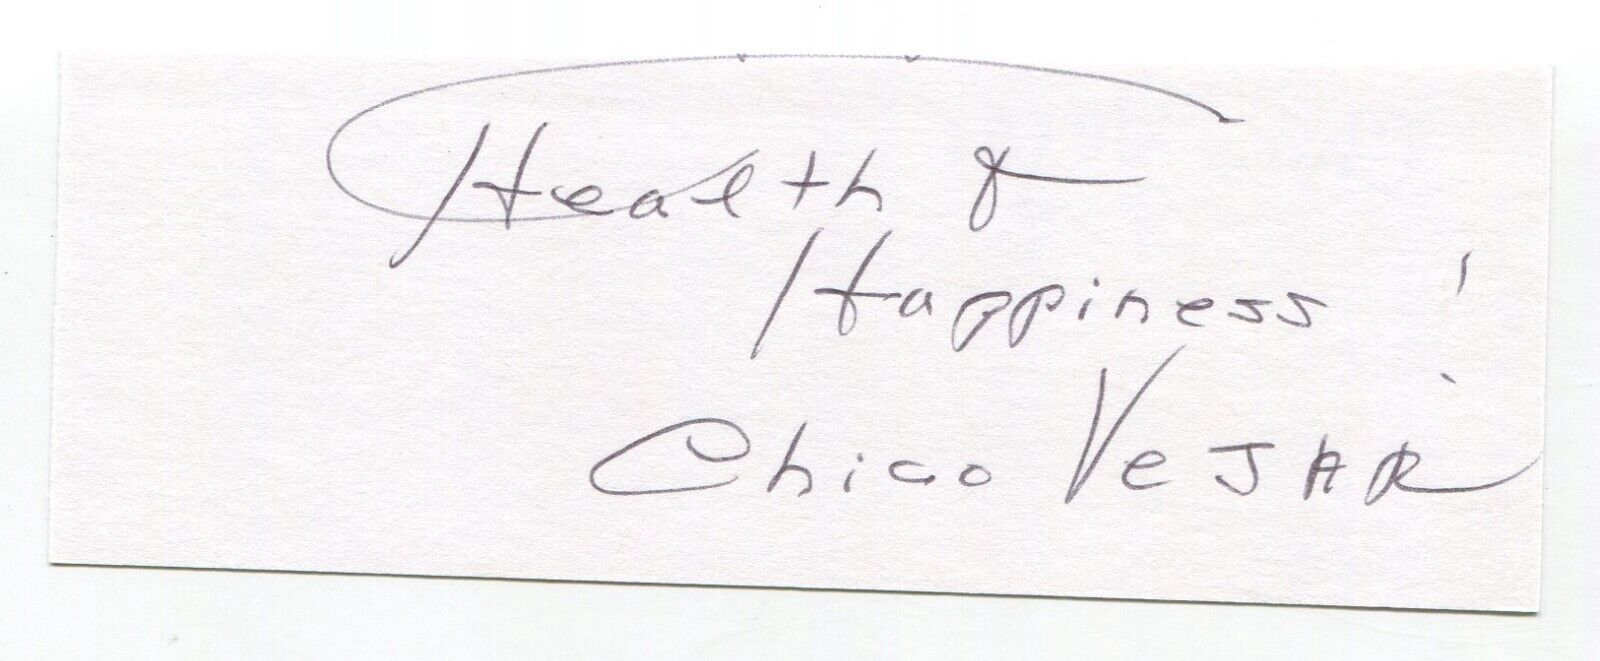 Health &
Happiness!
Chico Vejar